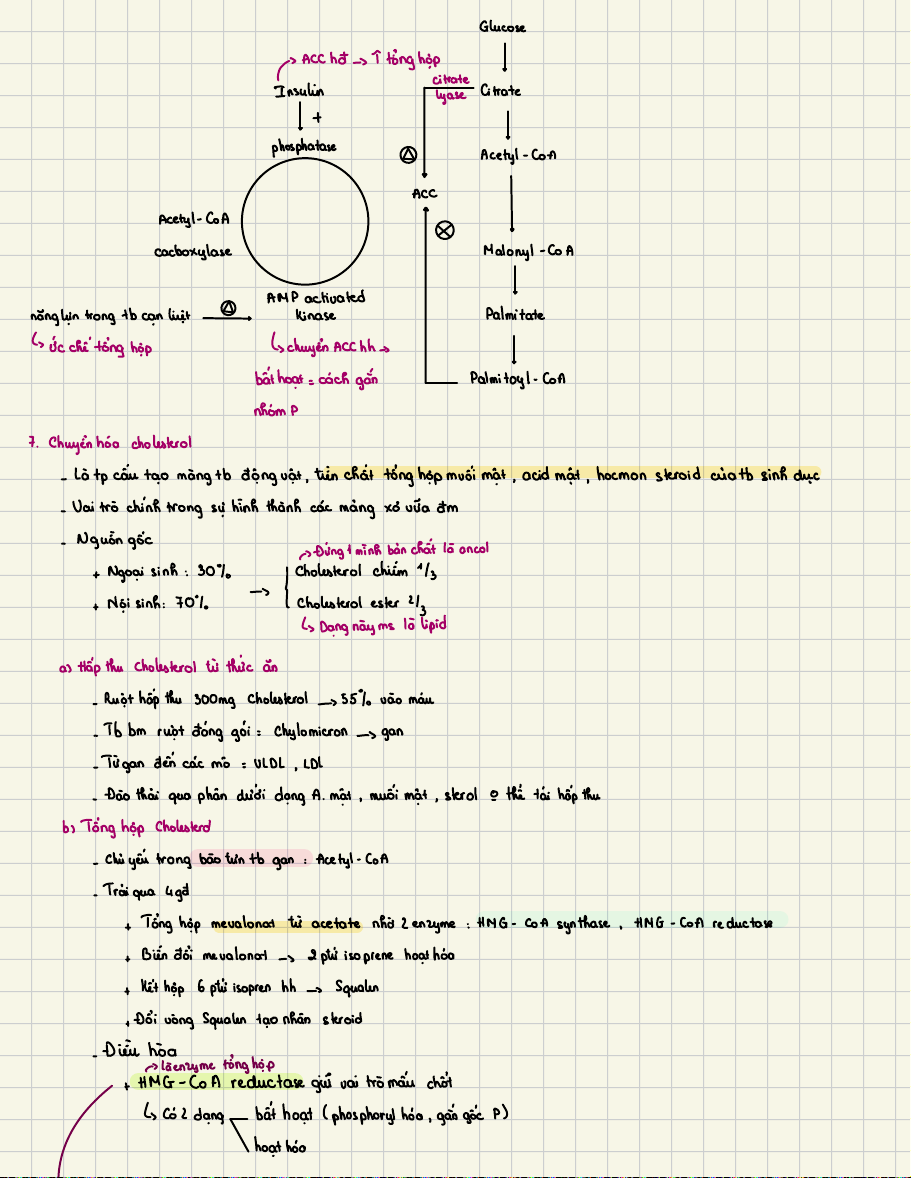 Glucose
ACC hđ → ↑ tổng hợp
citrate
lyase
Citrate
Insulin
+
phosphatase
Acetyl-CoA
ACC
Acetyl-CoA
cacboxylase
Malonyl-CoA
AMP activated
kinase
năng lựn trong tb cạn liuịt
Palmitate
↳ ức chế tổng hợp
↳ chuyển ACC hh →
bất hoạt = cách gắn
nhóm P
Palmitoyl-CoA
7. Chuyển hóa cholesterol
- Là tp cấu tạo màng tb động vật, tiền chất tổng hợp muối mật, acid mật, hocmon steroid của tb sinh dục
- Vai trò chính trong sự hình thành các mảng xơ vữa đm
- Nguồn gốc
→ Đứng 1 mình bản chất là ancol
+ Ngoại sinh : 30%
→ Cholesterol chiếm 1/3
+ Nội sinh: 70%
Cholesterol ester 2/3
↳ Dạng này ms là lipid
a) Hấp thu Cholesterol từ thức ăn
- Ruột hấp thu 300mg Cholesterol → 55% vào máu
- Tb bm ruột đóng gói = Chylomicron → gan
- Từ gan đến các mô = VLDL , LDL
- Đào thải qua phân dưới dạng A. mật , muối mật , sterol thể tái hấp thu
b) Tổng hợp Cholesterol
- Chủ yếu trong bào tương tb gan : Acetyl-CoA
- Trải qua 4 gđ
+ Tổng hợp mevalonat từ acetate nhờ 2 enzyme : HMG-CoA synthase , HMG-CoA reductase
+ Biến đổi mevalonat → 2 ptử isoprene hoạt hóa
+ Kết hợp 6 ptử isopren hh → Squalen
+ Đổi vòng Squalen tạo nhân steroid
- Điều hòa
→ là enzyme tổng hợp
+ HMG-CoA reductase giữ vai trò mấu chốt
↳ Có 2 dạng bất hoạt (phosphoryl hóa , gắn gốc P)
hoạt hóa